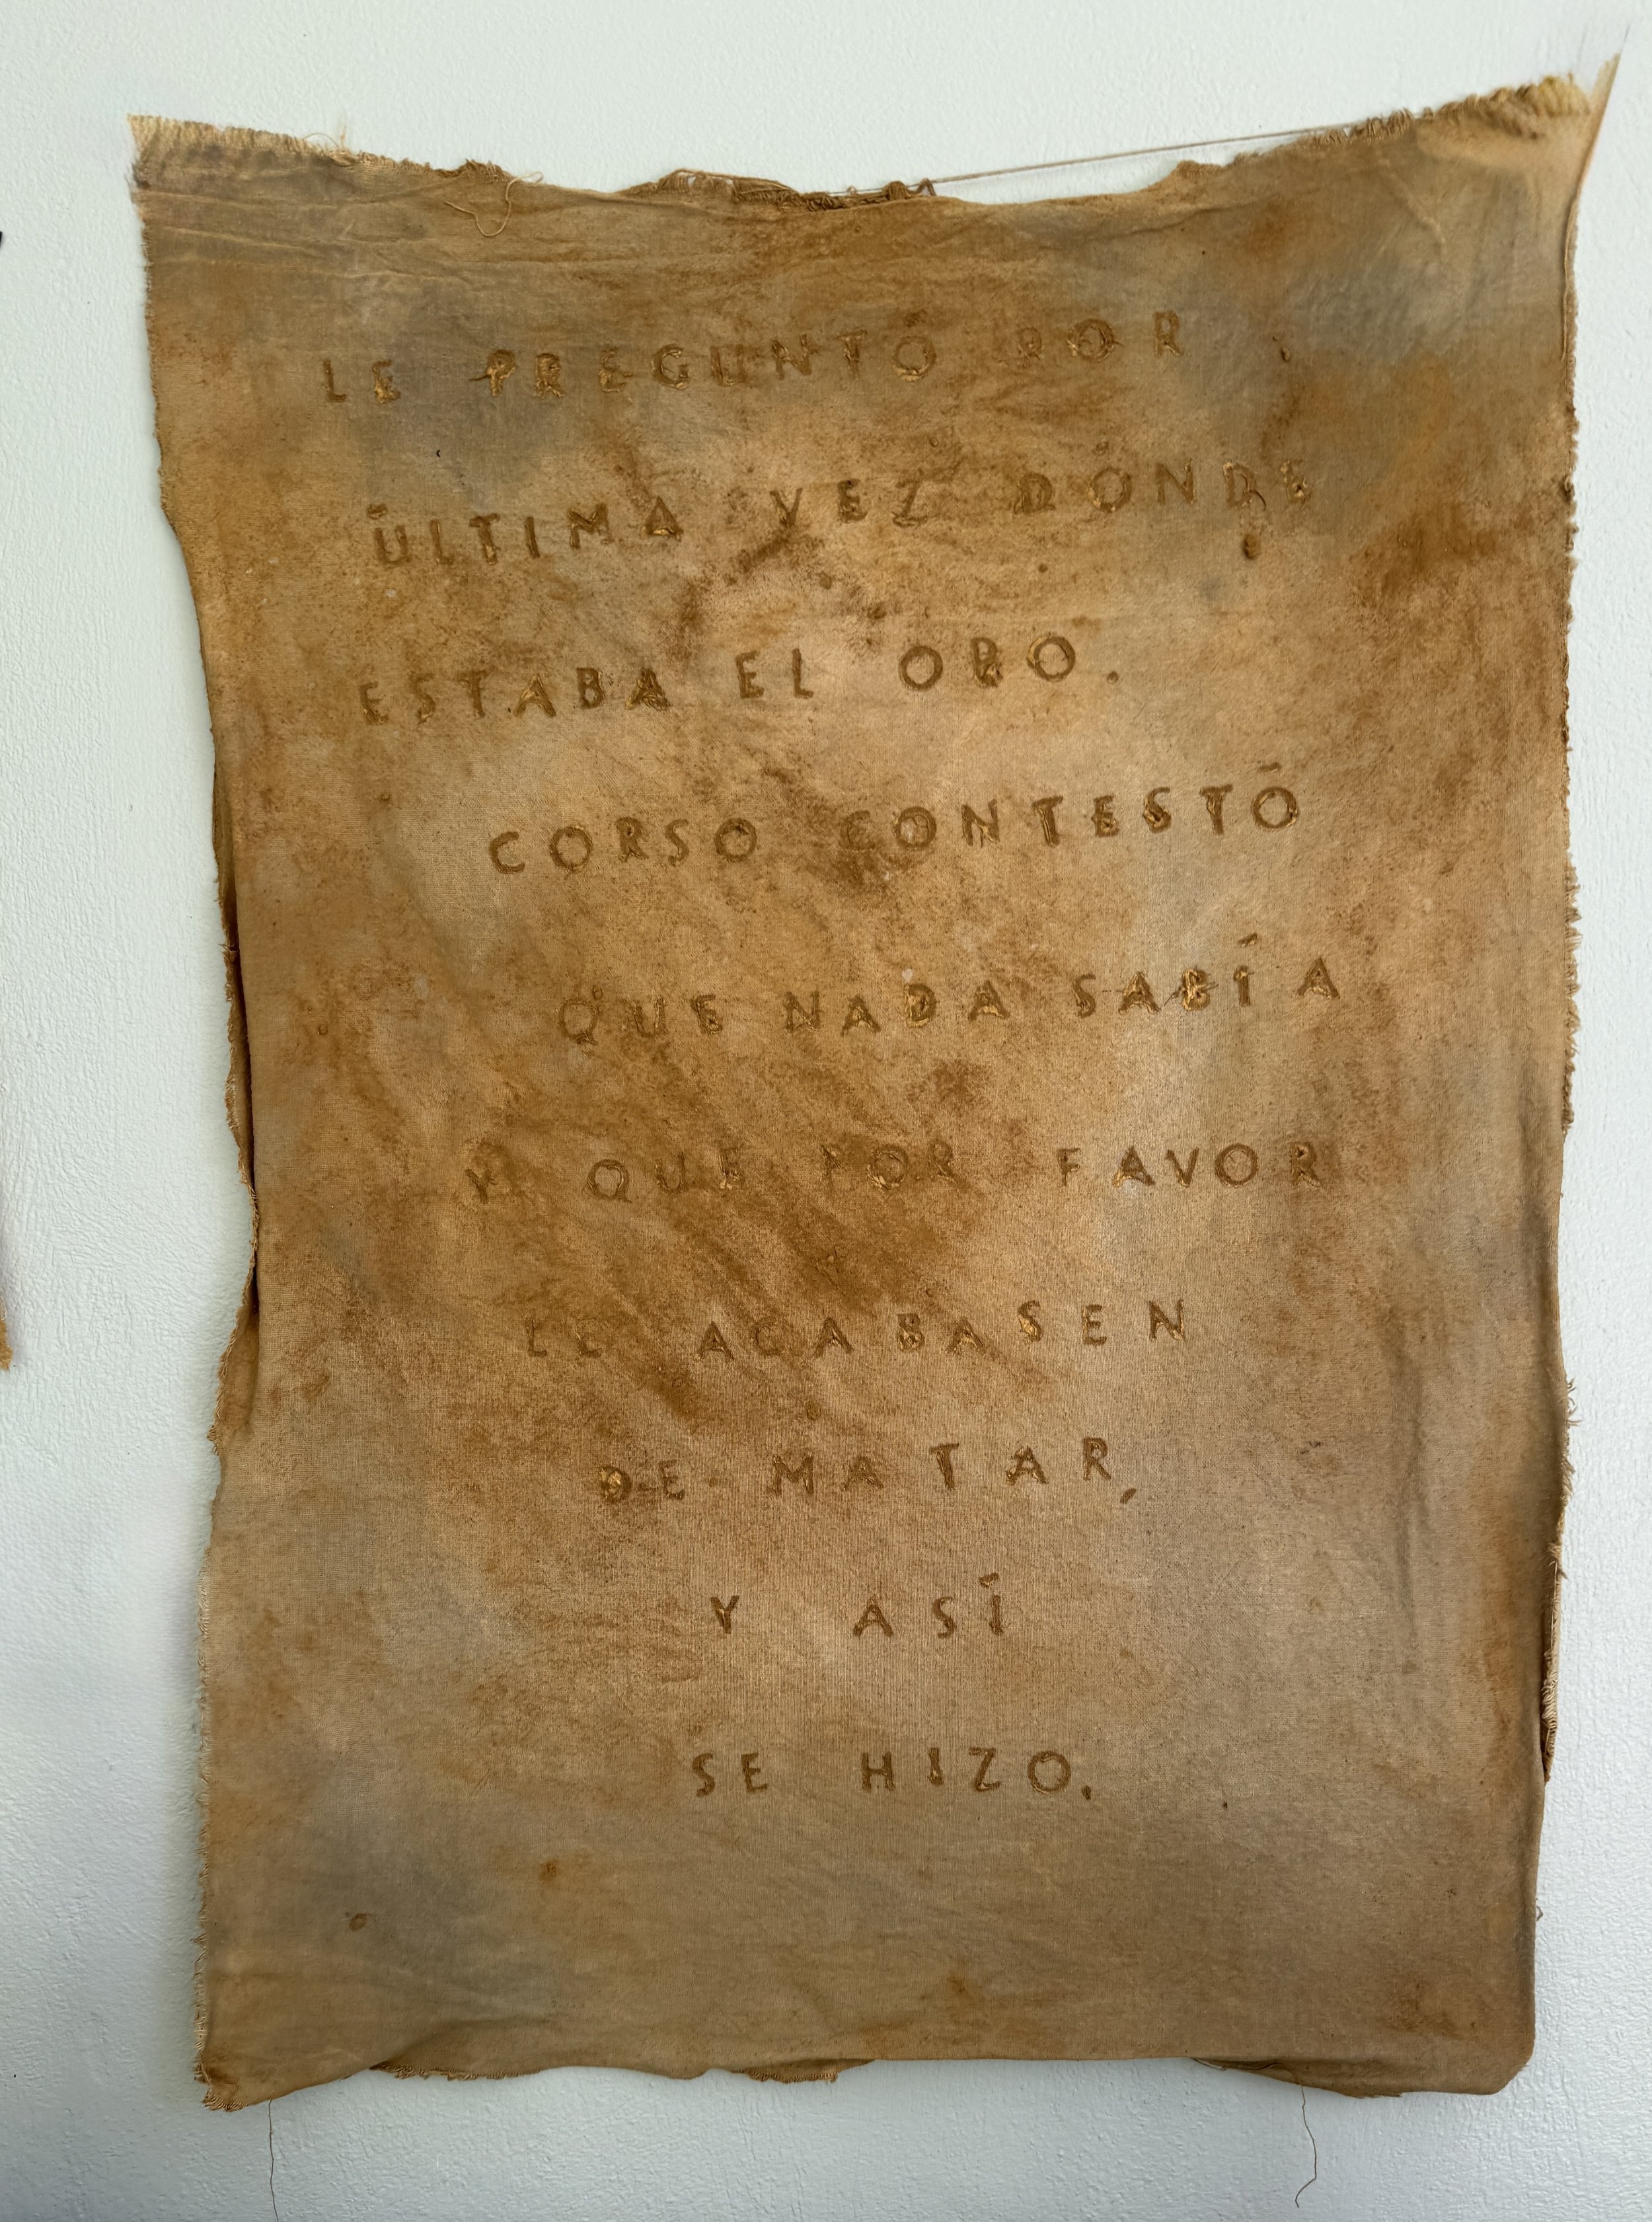 LE PREGUNTÓ POR
ÚLTIMA VEZ DÓNDE
ESTABA EL ORO.
CORSO CONTESTÓ
QUE NADA SABÍA
Y QUE POR FAVOR
LE ACABASEN
DE MATAR,
Y ASÍ
SE HIZO.